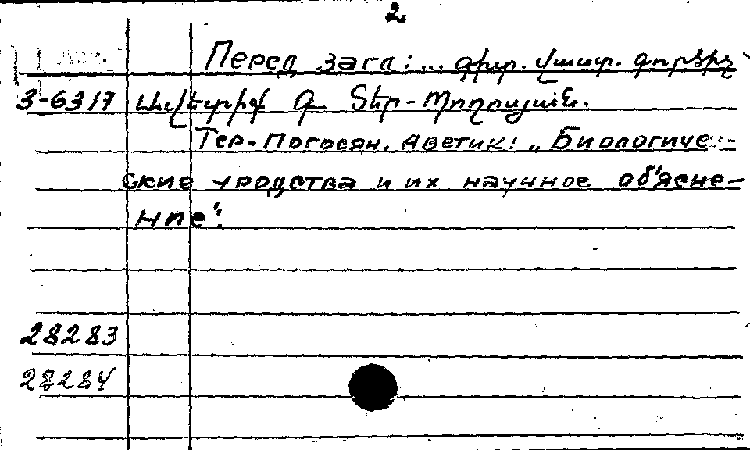 2
Перед загл: ... գիտ. վաստ. գործիչ
3-6317 Ավետիք Գ Տեր-Պողոսյան.
Тер-Погосян, Аветик: „Биологиче-
ские уродства и их научное об'ясне-
ние“.
28283
28284